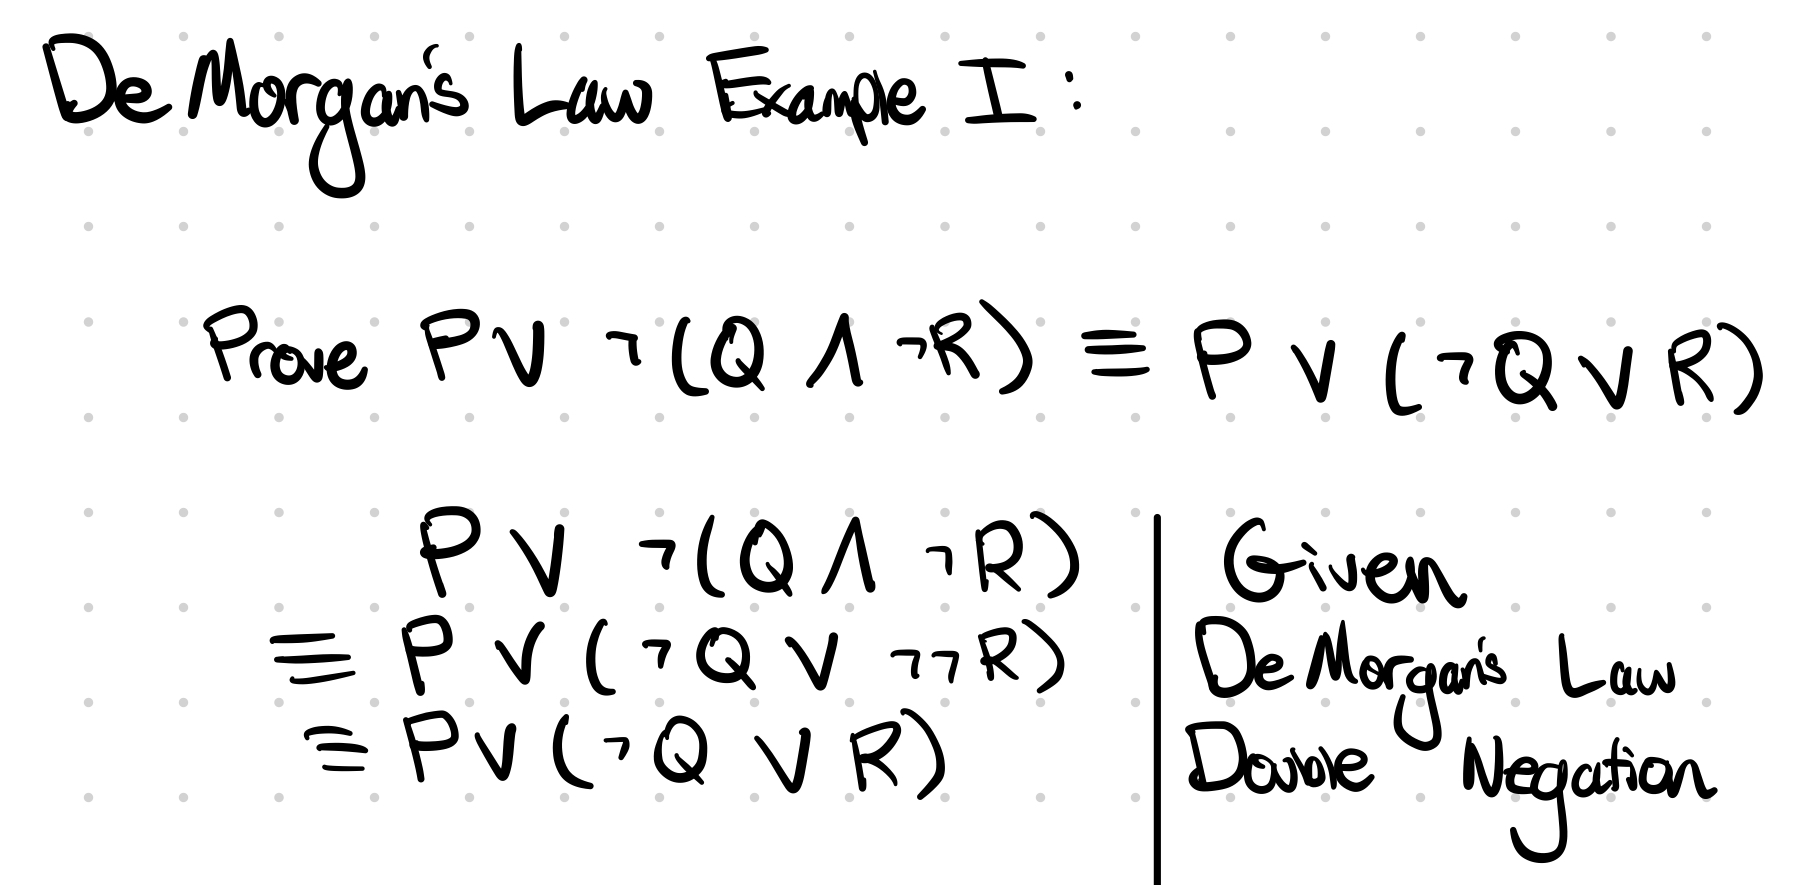 De Morgan's Law Example I:
Prove P ∨ ¬(Q ∧ ¬R) ≡ P ∨ (¬Q ∨ R)
P ∨ ¬(Q ∧ ¬R) Given
≡ P ∨ (¬Q ∨ ¬¬R) De Morgan's Law
≡ P ∨ (¬Q ∨ R) Double Negation